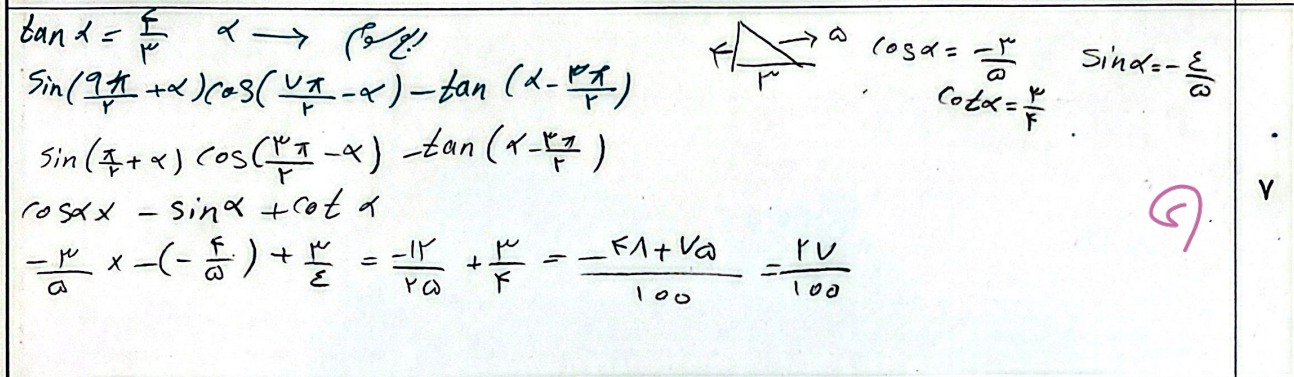 tan α = ۴/۳ α → ربع سوم
۴ ۳ → ۵ cosα = -۳/۵ sinα = -۴/۵
cotα = ۳/۴
sin(۹π/۲ + α) cos(۷π/۲ - α) - tan(α - ۳π/۲)
sin(π/۲ + α) cos(۳π/۲ - α) - tan(α - ۳π/۲)
cosα x - sinα + cot α
-۳/۵ x -(-۴/۵) + ۳/۴ = -۱۲/۲۵ + ۳/۴ = -۴۸+۷۵/۱۰۰ = ۲۷/۱۰۰
۷